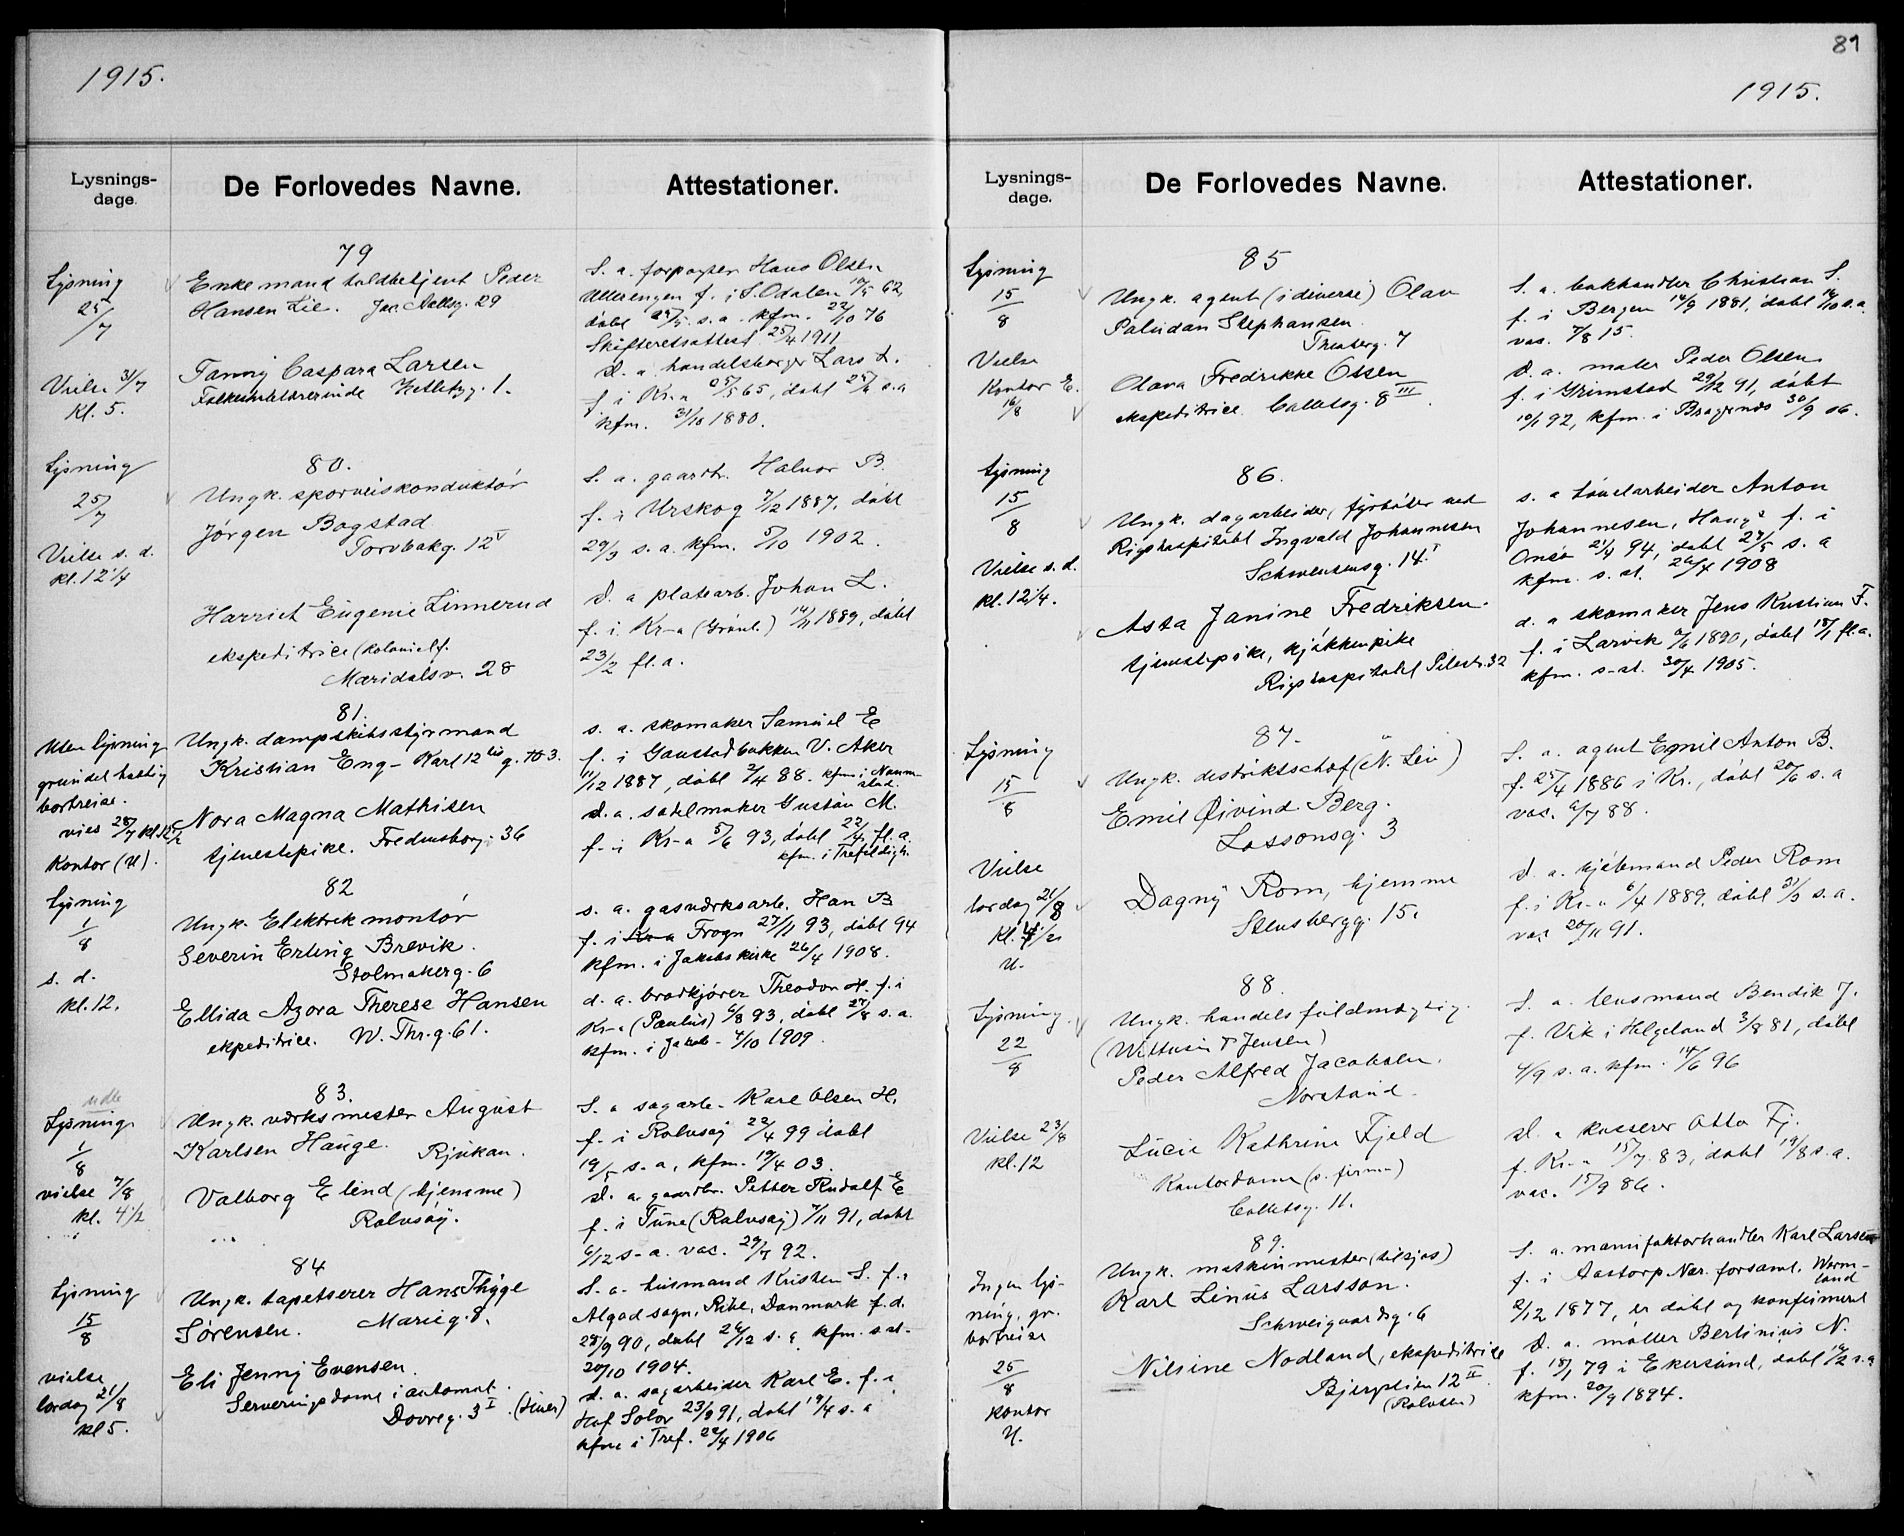 1915.
Lysnings-
dage.
De Forlovedes Navne.
Attestationer.
79
Lysning
25/7
Vielse 31/7
kl. 5.
Enkemand toldbetjent Peder
Hansen Lie. Jac. Aallsg. 29
Fanny Caspara Larsen
S. a. forpagter Hans Olsen
f. i S. Odalen 19/5 62,
døbt 24/5 s. a. kfm. 22/10 76
Skifteretsattest 25/4 1911
d. a. handelsborger Lars L.
f. i Kr.a 25/5 65, døbt s. a
kfm. 31/10 1880.
80.
Lysning
25/7
Vielse s. d.
kl. 12 1/4
Ungk. sporveiskonduktør
Jørgen Bogstad
Torvbakg. 12 V
Harriet Eugenie Linnerud
ekspeditrice (kolonialf.
Maridalsv. 28
S. a. gaardbr. Halvor B.
f. i Urskog 7/12 1887, døbt
29/3 s. a. kfm. 5/10 1902.
d. a platearb. Johan L.
f. i. Kr-a (Grønl.) 14/11 1889, døbt
23/2 fl. a.
81.
Uten lysning
grundet hastig
bortreise.
vies 28/7 kl. 12 1/2
Kontor (U).
Ungk. dampskibsstyrmand
Kristian Eng - Karl 12 tes g. 3.
Nora Magna Mathisen
tjenestepike. Fredensborg. 36
s. a. skomaker Samuel E
f. i Gaustadbakken V. Aker
11/12 1887, døbt 2/4 88. kfm i
d. a. sahlmaker Gustav M.
f. i Kr-a 5/6 93, døbt 22/4 fl. a.
kfm. i Trefoldigh.
82
Lysning
1/8
s. d.
kl. 12.
Ungk. Elektrik montør
Severin Erling Brevik.
Stolmakerg. 6
Ellida Azora Therese Hansen
ekpeditrice. W. Thr. g. 61.
s. a. gasværksarb. Han B
f. i Kr-a Frogn 27/11 93, døbt 94
kfm. i Jakobs kirke 26/4 1908.
d. a. brødkjører Theodor H. f. i
Kr-a (Paulus) 6/8 93, døbt 27/8 s. a.
kfm. i Jakob - 4/10 1909.
83.
ude
Lysning
1/8
vielse 7/8
kl. 4 1/2
Ungk. værksmester August
Karlsen Hauge. Rjukan.
Valborg Elind (hjemme)
Rolvsøy.
S. a sagarb. Karl Olsen H.
f. i Rolvsøy 22/4 99 døbt
19/5 s. a, kfm. 19/4 03.
d. a. gaardbr. Petter Rudolf E
f. i Tune (Rolvsøy) 7/11 91, døbt
6/12 s-a. vac. 29/7 92.
84
Lysning
15/8
vielse
lørdag 21/8
kl 5.
Ungk. tapetserer Hans Thyge
Sørensen. Marieg. 8.
Eli Jenny Evensen
Serveringsdame i automat.
Dovreg. 3 I
S. a. husmand Kristen S. f. i
sogn, Ribe, Danmark f. d.
28/9 90, døbt 26/12 s. a. kfm. s. st.
20/10 1904.
d. a. sagarbeider Karl E. f. i
Hof Solør 23/3 91, døbt 19/4 s. a
kfm i Tref. 22/4 1906
81
1915.
Lysnings-
dage.
De Forlovedes Navne.
Attestationer.
85
Lysning
15/8
Vielse
Kontor E.
16/8
Ungk. agent (i diverse) Olav
Paludan Stephansen
Thesberg. 7
Olava Fredrikke Olsen
ekspeditrice. Colletsg. 8 III.
S. a. bokhandler Christian S.
f. i Bergen 14/9 1881, døbt 16/10 s. a.
vac. 7/8 15.
d. a. maler Peder Olsen
f. i Grimstad 29/12 91, døbt
10/1 92, kfm. i Bragernes 30/9 06.
86.
Lysning
15/8
Vielse s. d.
kl. 12 1/4.
Ungk. dagarbeider, fyrbøter ved
Rigshospitalet Ingvald Johannesen
Schwensensg. 14 I
Asta Janine Fredriksen.
tjenestepike, kjøkkenpike
Rigshospitalet Pilestr. 32
s. a tøndarbeider Anton
Johannesen, Hauge f. i
Onsø 21/4 94, døbt 27/5 s. a
kfm. s. st. 26/4 1908
d. a skomaker Jens Kristian F.
f. i Larvik 1890, døbt 18/1 fl. a.
kfm. s-st. 30/4 1905.
87.
Lysning
15/8
Vielse
lørdag 21/8
U.
Ungk. distriktschef (N. Liv)
Emil Øivind Berg.
Lassonsg. 3
Dagny Rom, hjemme
Stensbergg. 15.
S. a. agent Emil Anton B.
f. 25/4 1886 i Kr., døbt 20/6 s. a
vac. 6/7 88.
d. a. kjøbmand Peder Rom
f. i Kr-a 6/4 1889, døbt 31/3 s. a.
vac 20/11 91.
88.
Lysning.
22/8
Vielse 23/8
kl. 12
Ungk. handelsfuldmægtig
(Wittusen & Jensen)
Peder Alfred Jacobsen.
Norstand.
Lucie Kathrine Fjeld
Kontordame (s. firma)
Colletsg. 11.
S. a. lensmand Bendik J.
f. Vik i Helgeland 3/8 81, døbt
4/9 s. a. kfm. 14/6 96
d. a kasserer Otto Fj.
f. Kr.a 15/7 83, døbt 19/8 s. a.
vac. 15/9 86.
89.
Ingen lys-
ning, gr.
bortreise
25/8
kontor
U.
Ungk. maskinmester (tilsjøs)
Karl Linus Larsson.
Schweigaardsg. 6
Nilsine Nodland, ekspeditrice
12 II
S. a. manufakturhandler Karl Larsen
f. i Aastorp Nær. forsaml. Werm-
land
2/12 1877, er døbt og konfirmeret
d. a. møller Bertinius N.
f. 18/1 79 i Ekersund, døbt s. a
kfm. 20/9 1894.